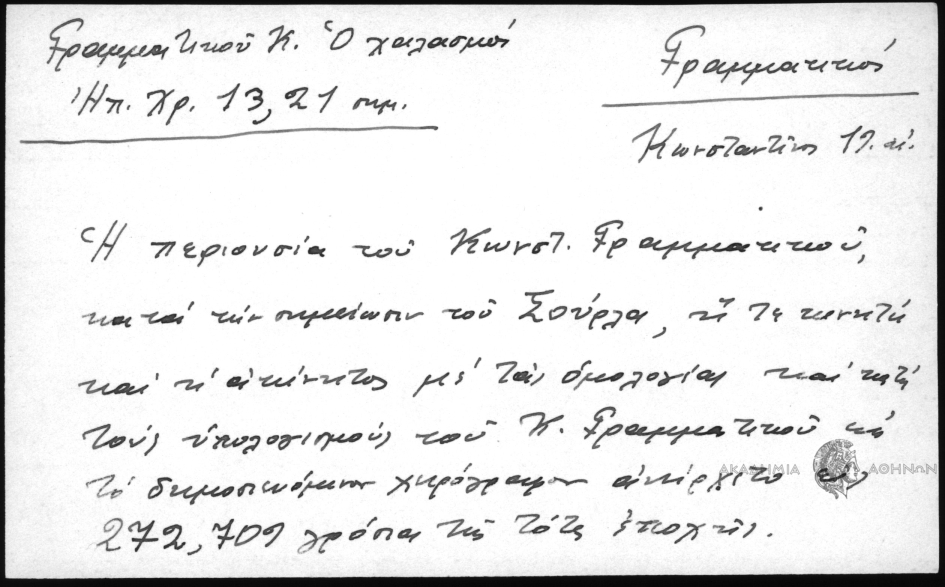 Γραμματικοῦ Κ. Ὁ χαλασμός
Ἠπ. Χρ. 13, 21 σημ.
Γραμματικός
Κωνσταντῖνος 19. αἰ.
Ἡ περιουσία τοῦ Κωνστ. Γραμματικοῦ,
κατά τήν σημείωσιν τοῦ Σούρλα, ἥ τε κινητή
καί ἡ ἀκίνητος μέ τάς ὁμολογίας καί κατά
τούς ὑπολογισμούς τοῦ Κ. Γραμματικοῦ
τό δημοσιευόμενον χειρόγραφον ἀνήρχετο εἰς
272,709 γρόσια τῆς τότε ἐποχῆς.
ΑΚΑΔΗΜΙΑ ΑΘΗΝΩΝ